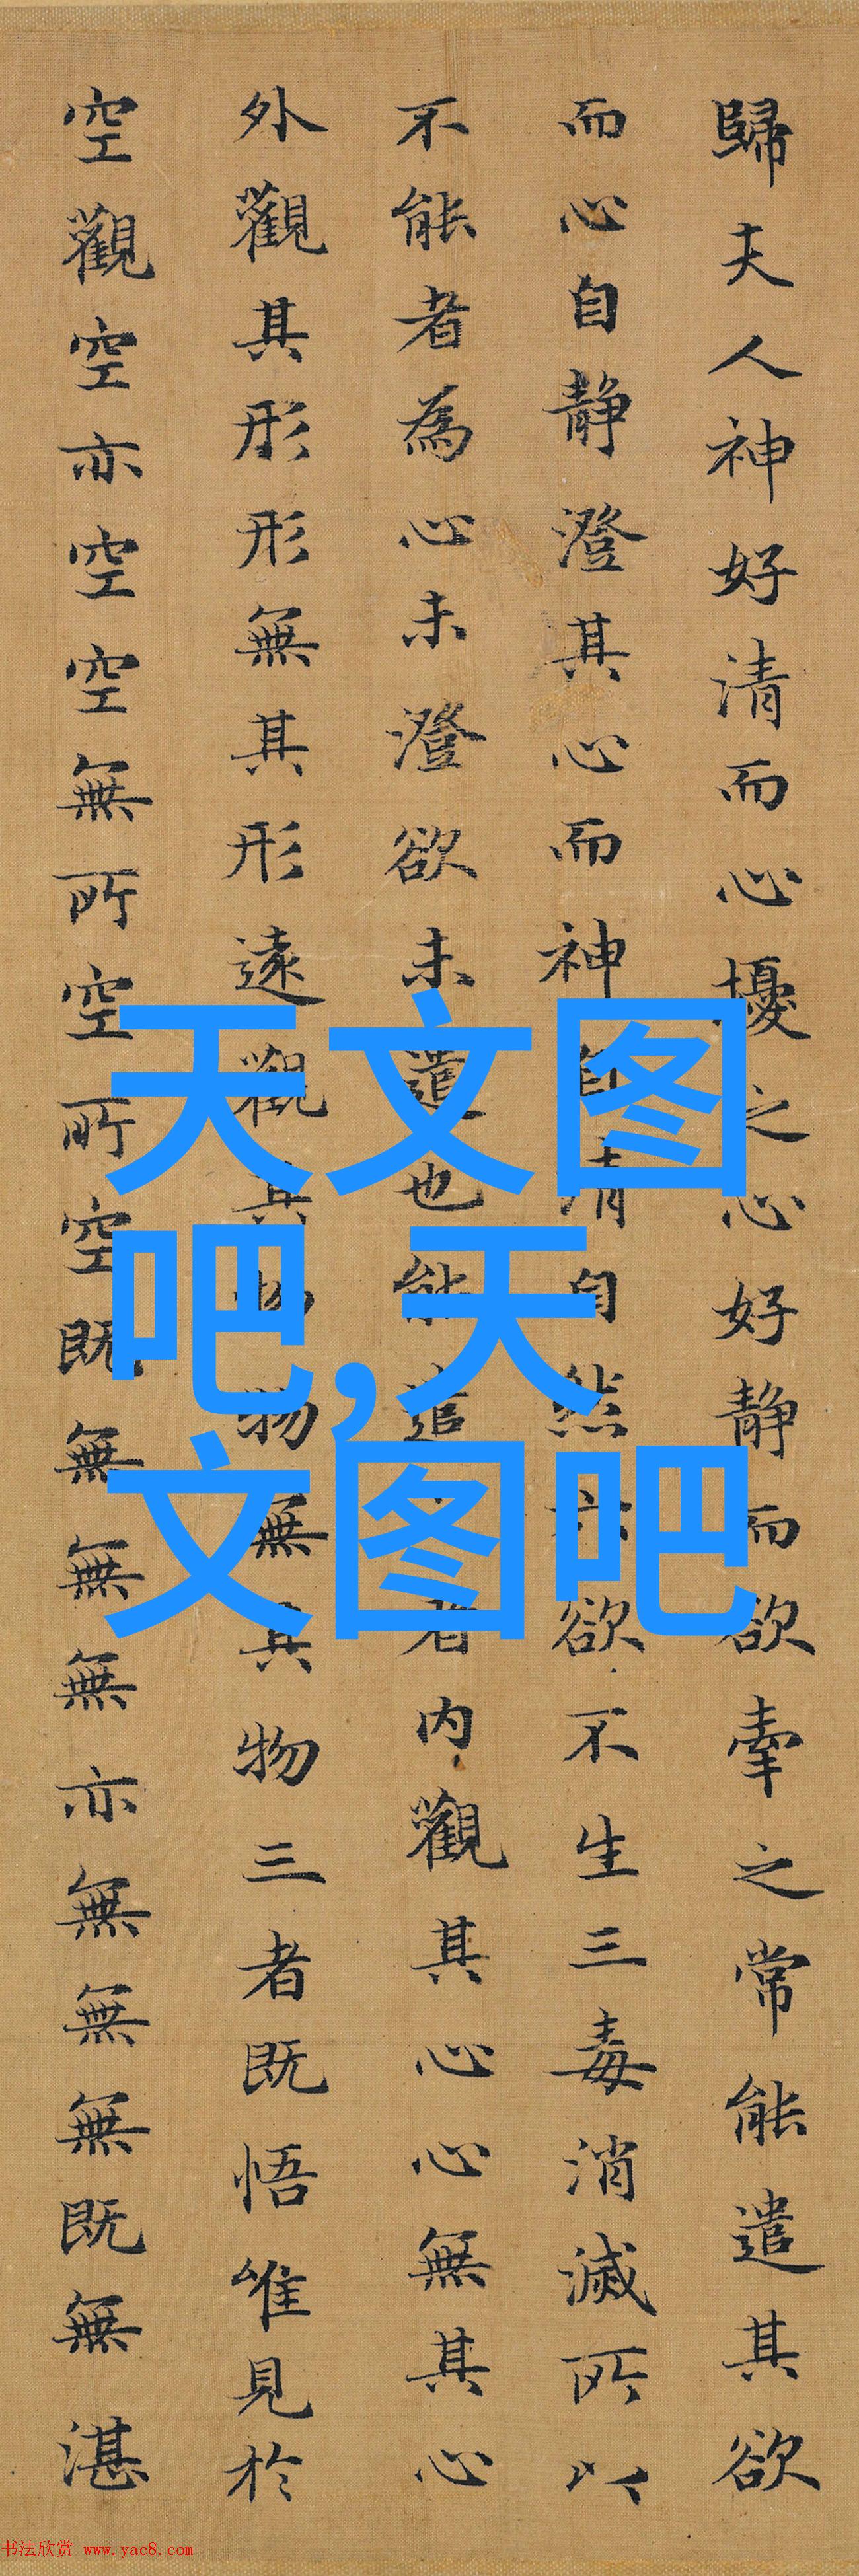 歸夫人神好清而心擾之心好静而欲牽之常能遣其欲
而心自静澄其心而神自清自然六欲不生三毒消滅所以
不能者為心未澄欲未遣也能遣之者内觀其心心無其心
外觀其形形無其形遠觀其物物無其物三者既悟唯見於
空觀空亦空空無所空所空既無無無亦無無無既無湛
天文图
吧,天
文图吧
书法欣赏 www.yac8.com